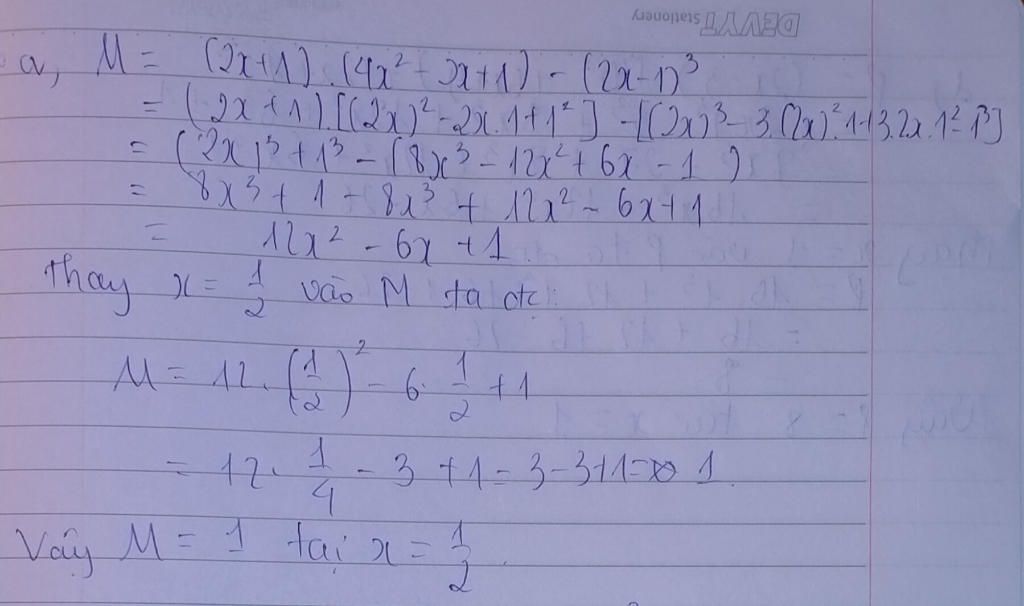 DEVYT Stationery
a, M = (2x+1).(4x² - 2x+1) - (2x-1)³
= (2x+1).[(2x)² - 2x.1+1²] - [(2x)³ - 3.(2x)².1+3.2x.1² - 1³]
= (2x)³ + 1³ - (8x³ - 12x² + 6x - 1)
= 8x³ + 1 - 8x³ + 12x² - 6x + 1
= 12x² - 6x + 1
Thay x = 1/2 vào M ta đc:
M = 12.(1/2)² - 6.1/2 + 1
= 12.1/4 - 3 + 1 = 3-3+1= 1.
Vậy M = 1 tại x = 1/2.